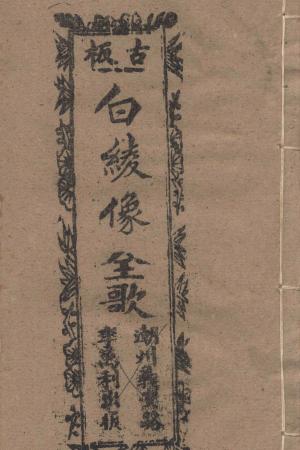 古板
白綾像全歌
潮州義安路
李萬利出板